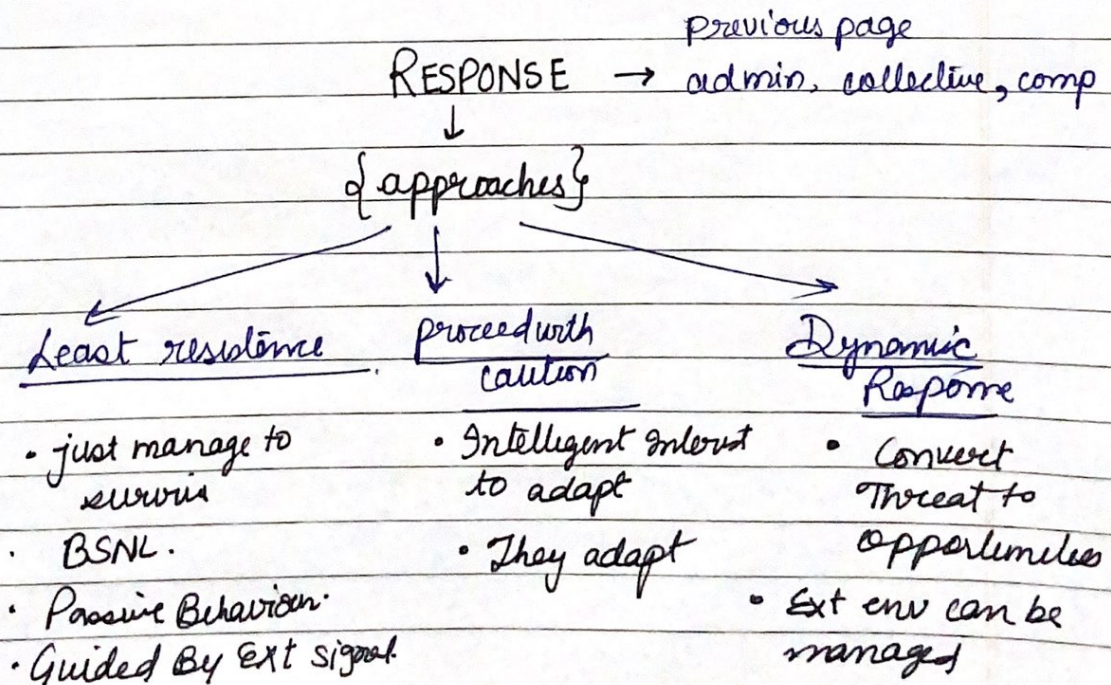 previous page
RESPONSE → admin, collective, comp
↓
{approaches}
Least resistence.
just manage to
survis
• BSNL.
• Passive Behaviour.
• Guided By Ext signal.
proceed with
caution
• Intelligent Interest
to adapt
• They adapt
Dynamic
Response
• Convert
Threat to
opportunities
• Ext env can be
managed